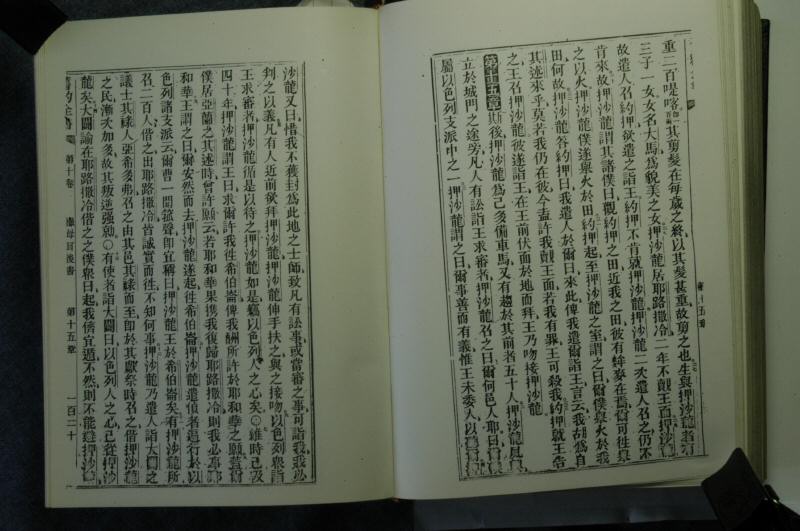 重二百是喀其剪髮在每歲之終以其髮甚重故剪之也生與押沙龍者有
三子一女女名大馬爲貌美之女押沙龍居耶路撒冷二年不覿王面押沙龍
故遣人召約押欲遣之詣王約押不肯就押沙龍押沙龍二次遣人召之仍不
肯來故押沙龍謂其諸僕曰觀約押之田近我之田彼有牟麥在焉爾可往與
之以火押沙龍僕遂與火於田約押起至押沙龍之室謂之曰爾僕與火於我
田何故押沙龍答約押曰我遣人於爾曰來此俾我遣爾詣王言云我胡爲自
其述來乎莫若我仍在彼今盍許我覿王面若我有罪王可殺我約押就王告
之王召押沙龍彼遂詣王在王前伏面於地而拜王乃吻接押沙龍
第十五章斯後押沙龍爲己多備車馬又有趨於其前者五十人押沙龍夙興
立於城門之途旁凡人有訟詣王求審者押沙龍召之曰爾何邑人耶曰
屬以色列支派中之一押沙龍謂之曰爾事善而有義惟王未委人以
沙龍又曰惜我不獲封爲此地之士師致凡有訟事或當審之事可詣我我必
判之以義凡有人近前欲拜押沙龍押沙龍伸手扶之與之接吻以色列衆詣
王求審者押沙龍循是以待之押沙龍如是蠱以色列人之心矣〇維時已及
四十年押沙龍謂王曰求爾許我往希伯崙俾我酬所許於耶和華之願蓋爾
僕居亞蘭之其述時曾許願云若耶和華果攜我復歸耶路撒冷則我必事耶
和華王謂之曰爾安然而去押沙龍遂起往希伯崙押沙龍遣偵者遍行於以
色列諸支派云爾曹一聞箛聲卽宜稱曰押沙龍王於希伯崙矣有押沙龍所
召二百人偕之出耶路撒冷皆誠實而往不知何事押沙龍乃遣人詣大闢之
議士其祿人亞希多弗召之由其邑其祿而至卽於其獻祭時召之偕押沙龍
之民漸次加多故其叛逆强勍〇有使者詣大闢曰以色列人之心已從押沙
龍矣大闢諭在耶路撒冷偕之之僕衆曰起我儕宜遁不然則不能避押沙龍
舊約全書 第十卷 撒母耳後書 第十五章 一百二十